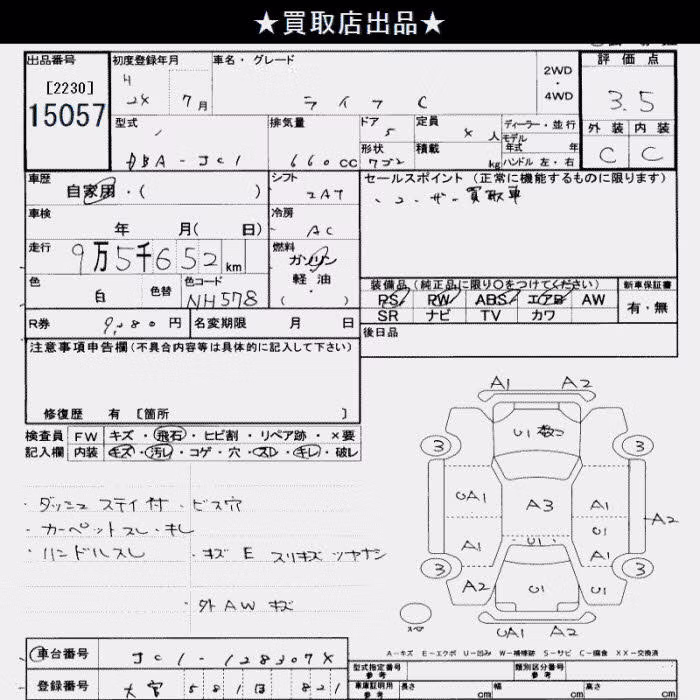 ★買取店出品★
出品番号 初度登録年月 車名・グレード 2WD・4WD 評価点
[2230] H 24 7月 ライフ C 3.5
15057
型式 排気量 ドア 定員 ディーラー・並行 外装 内装
DBA-JC1 660cc 5 人 モデル年式 年 C C
形状 積載 kg ハンドル 左・右
車歴 シフト セールスポイント (正常に機能するものに限ります)
自家用・( ) 2AT ・ユーザー買取車
車検 冷房
年 月( 日) AC
走行 燃料
9万5千652km ガソリン
軽油
( )
色 色替 色コード 装備品(純正品に限り○をつけてください) 新車保証書
白 NH578 PS PW ABS エアB AW 有・無
SR ナビ TV カワ
R券 円 名変期限 月 日 後日品
注意事項申告欄(不具合内容等は具体的に記入して下さい)
修復歴 有 [箇所 ]
検査員 FW キズ・飛石・ヒビ割・リペア跡・×要
記入欄 内装 キズ・汚レ・コゲ・穴・スレ・キレ・破レ
・ダッシュ ステイ付・ビス穴
・カーペットスレ・キレ
・ハンドルスレ ・キズ E スリキズ ツヤナシ
・外AW キズ
A1 A2
3 U1 3
UA1 A3 A1
U1 A2
A1 U1 A1
3 3
A2 U1 U1
スペア UA1 A2
A-キズ E-エクボ U-凹み W-補修跡 S-サビ C-腐食 XX-交換済
車台番号 型式指定番号 参考 類別区分番号 参考
登録番号 車庫証明用 参考 長さ cm 幅 cm 高さ cm